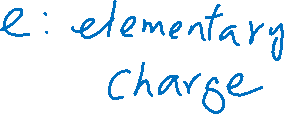 e: elementary
charge